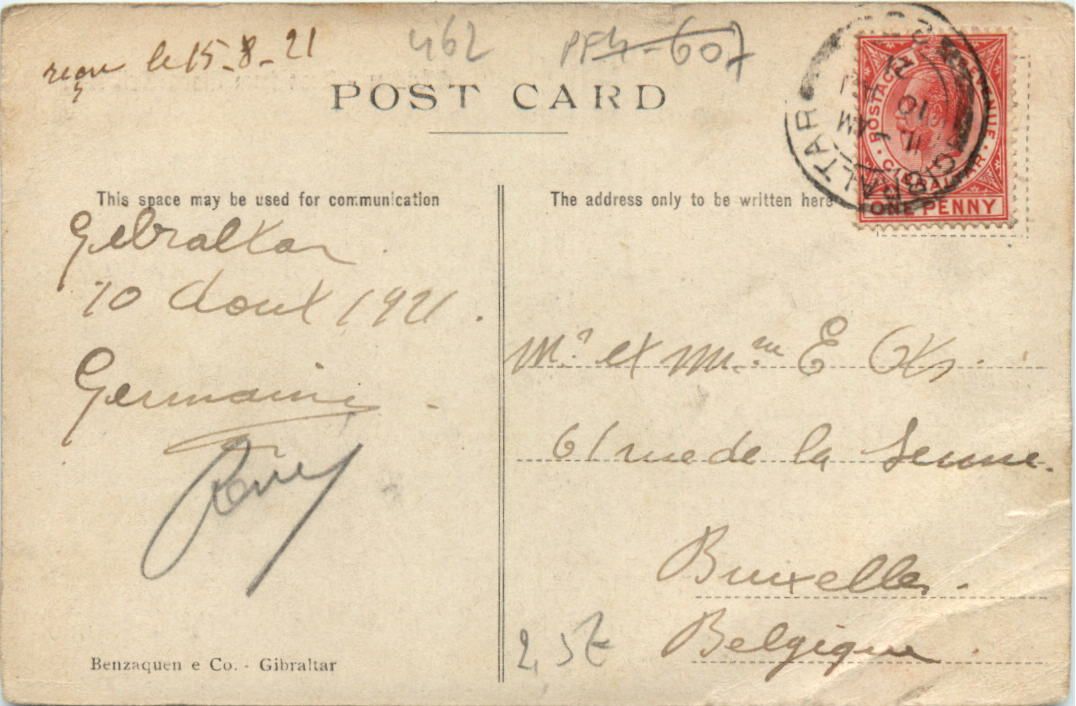 reçu le 15-8-21
462
PF4-607
POST CARD
This space may be used for communication
The address only to be written here
POSTAGE & REVENUE
GIBRALTAR
ONE PENNY
GIBRALTAR
Gibraltar.
10 Aout 1921.
Germaine
Mr et Mme E
61 rue de la Senne.
Bruxelles.
Belgique.
2,5€
Benzaquen e Co. - Gibraltar